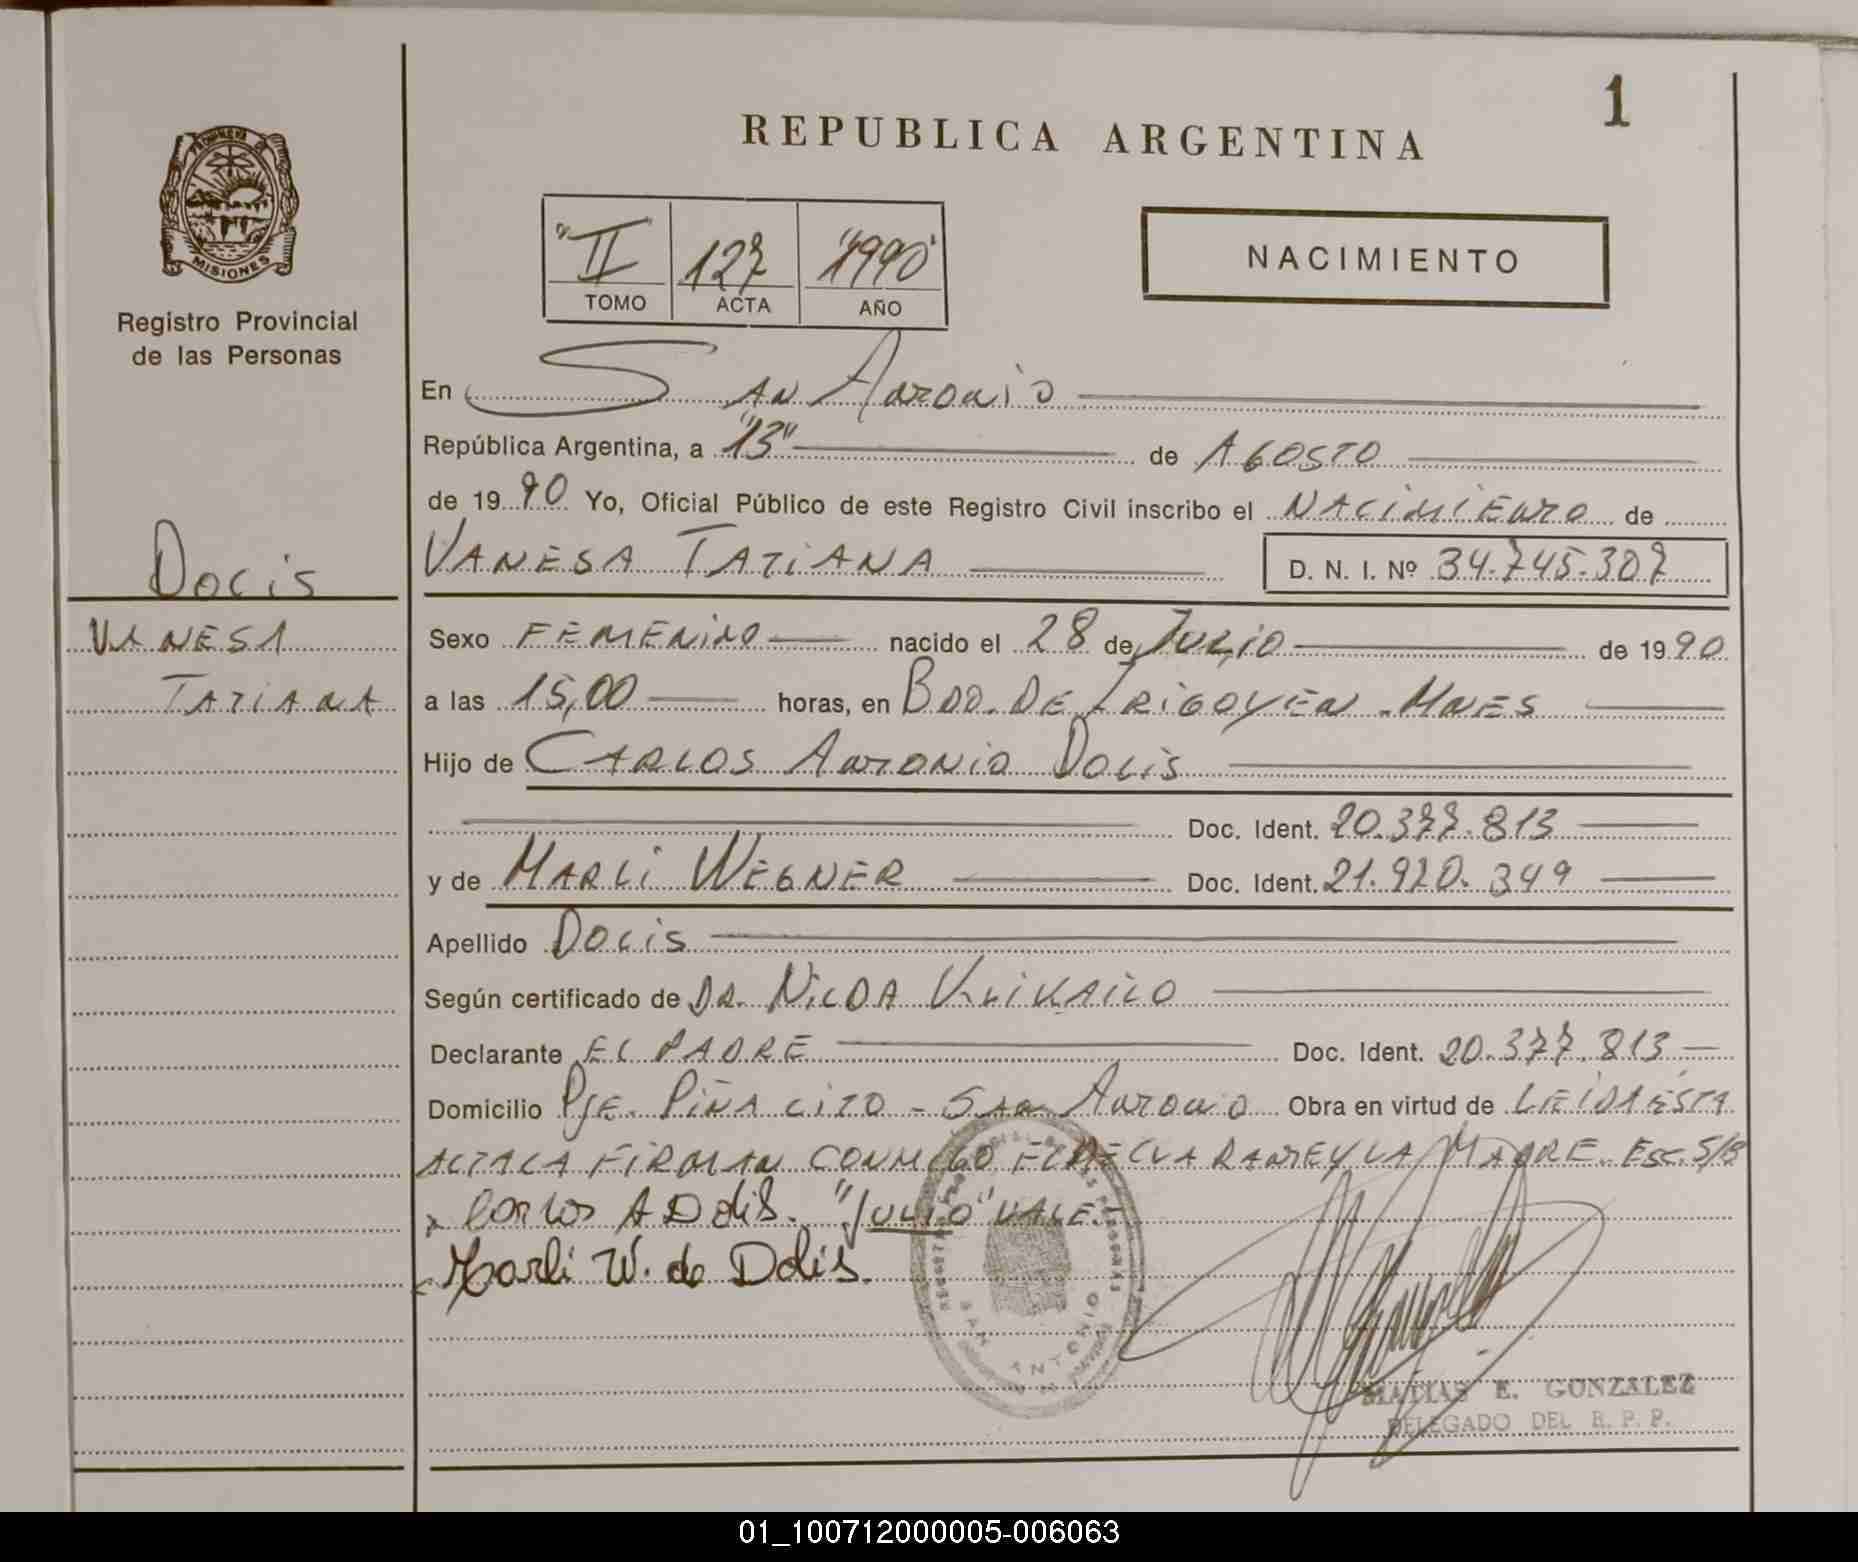 1
REPUBLICA ARGENTINA
PROVINCIA DE
MISIONES
Registro Provincial
de las Personas
"II" 127 "1990"
TOMO ACTA AÑO
NACIMIENTO
En San Antonio
República Argentina, a "13" de Agosto
de 1990 Yo, Oficial Público de este Registro Civil inscribo el NACIMIENTO de
VANESA TATIANA D. N. I. Nº 34.745.307
DOLIS
VANESA
TATIANA
Sexo FEMENINO nacido el 28 de JULIO de 1990
a las 15,00 horas, en BDO. DE IRIGOYEN - MNES
Hijo de CARLOS ANTONIO DOLIS
Doc. Ident. 20.377.813
y de MARLI WEGNER Doc. Ident. 21.920.349
Apellido DOLIS
Según certificado de DR. NILDA
Declarante EL PADRE Doc. Ident. 20.377.813
Domicilio PJE. PIÑALITO - SAN ANTONIO Obra en virtud de LEIDA ESTA
ACTA LA FIRMAN CONMIGO EL DECLARANTE Y LA MADRE. Esc. S/B
Carlos A Dolis. "JULIO" VALE.
Marli W. de Dolis.
SAN ANTONIO
MATIAS E. GONZALEZ
DELEGADO DEL R. P. P.
01_100712000005-006063